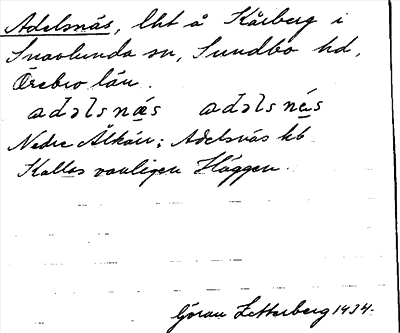 Adelsnäs, lht å Kårberg i
Snavlunda sn, Sundbo hd,
Örebro län.
adəlsnæs adəlsnés
Nedre Ålkärr; Adelsnäs kb
Kallas vanligen Häggen.
Göran Zetterberg 1934.